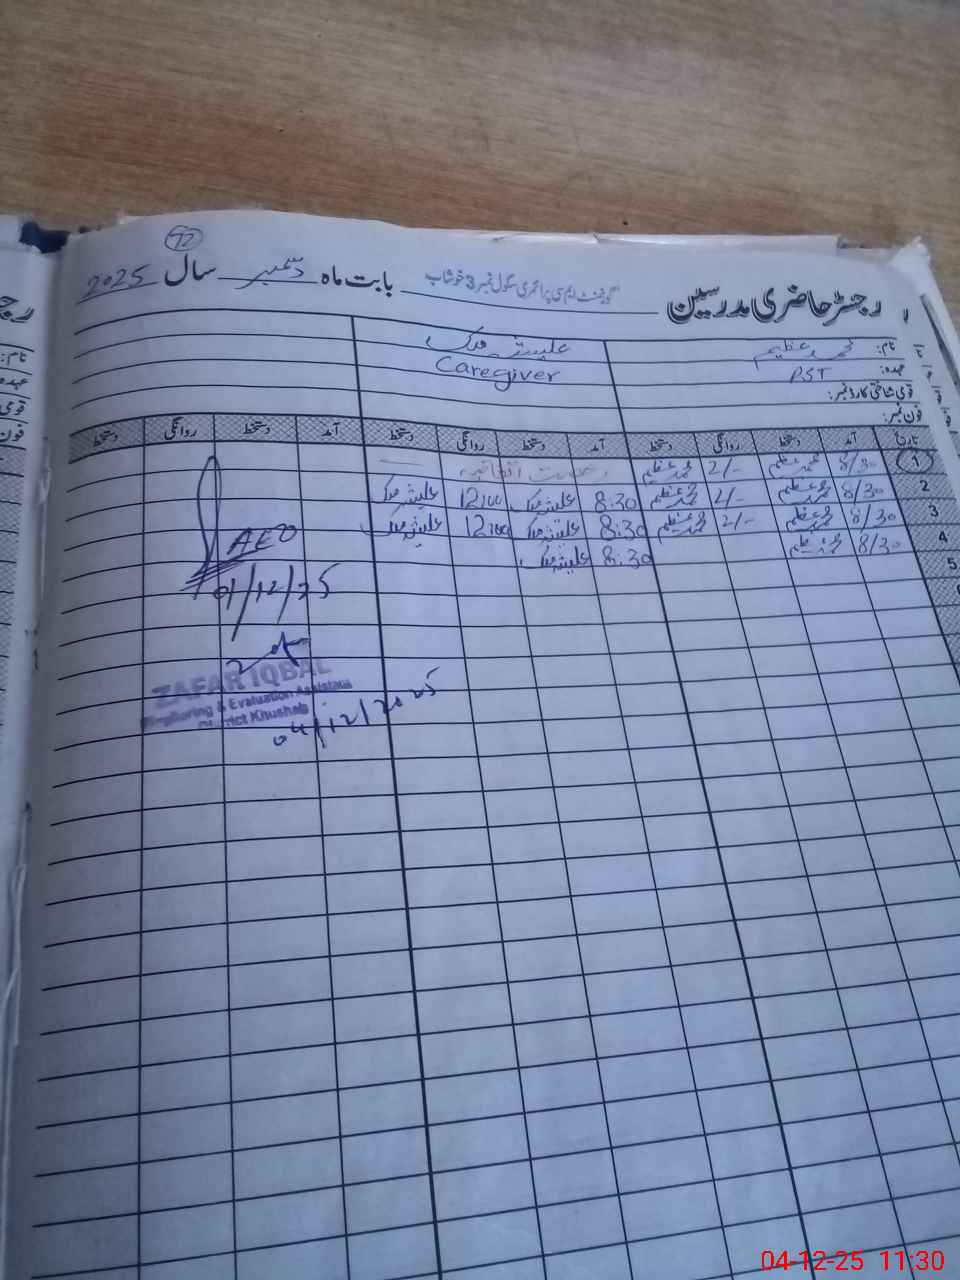 72
رجسٹر حاضری مدرسین گورنمنٹ ایم سی پرائمری سکول نمبر 3 خوشاب بابت ماہ دسمبر سال 2025
نام: محمد عظیم
عہدہ: PST
قومی شناختی کارڈ نمبر:
فون نمبر:
علیشہ
Caregiver
تاریخ آمد دستخط روانگی دستخط آمد دستخط روانگی دستخط آمد دستخط روانگی دستخط
1 8/30 محمد عظیم 2/- محمد عظیم رخصت اتفاقیہ
2 8/30 محمد عظیم 2/- محمد عظیم 8:30 علیشہ 12:00 علیشہ
3 8/30 محمد عظیم 2/- محمد عظیم 8:30 علیشہ 12:00 علیشہ
4 8/30 محمد عظیم 8:30 علیشہ
5
AEO
01/12/25
ZAFAR IQBAL
Monitoring & Evaluation Assistant
District Khushab
04/12/2025
نام:
عہدہ
قومی
فون
04-12-25 11:30